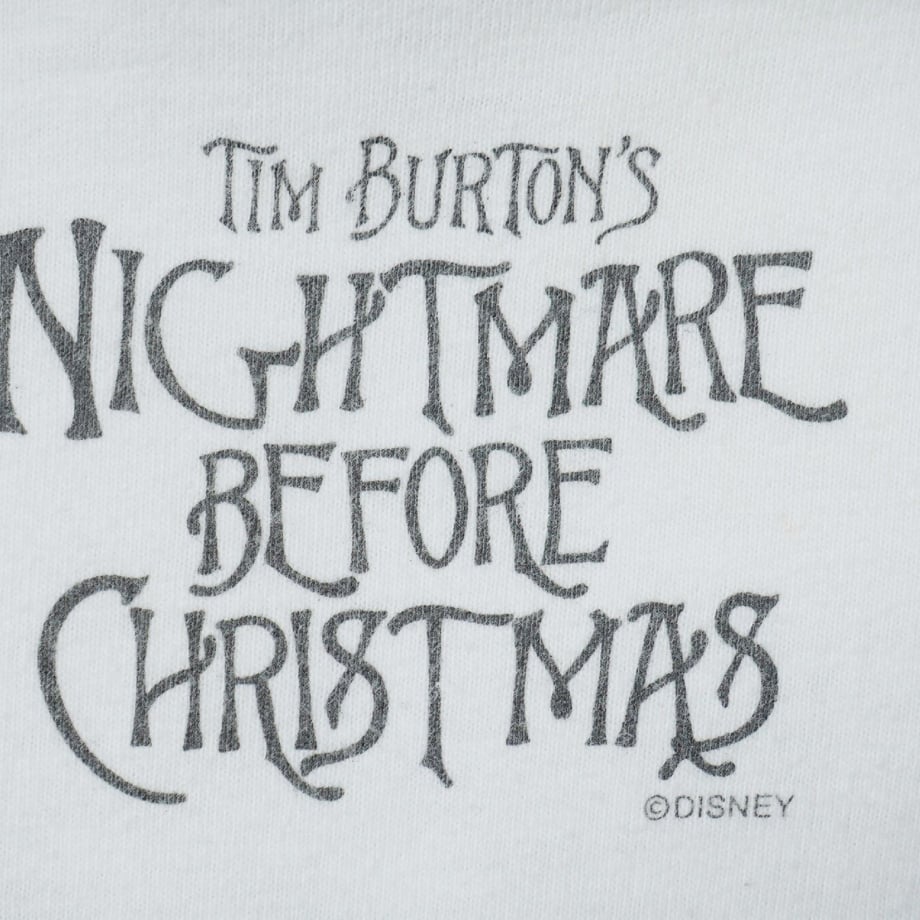 TIM BURTON'S
NIGHTMARE
BEFORE
CHRISTMAS
©DISNEY